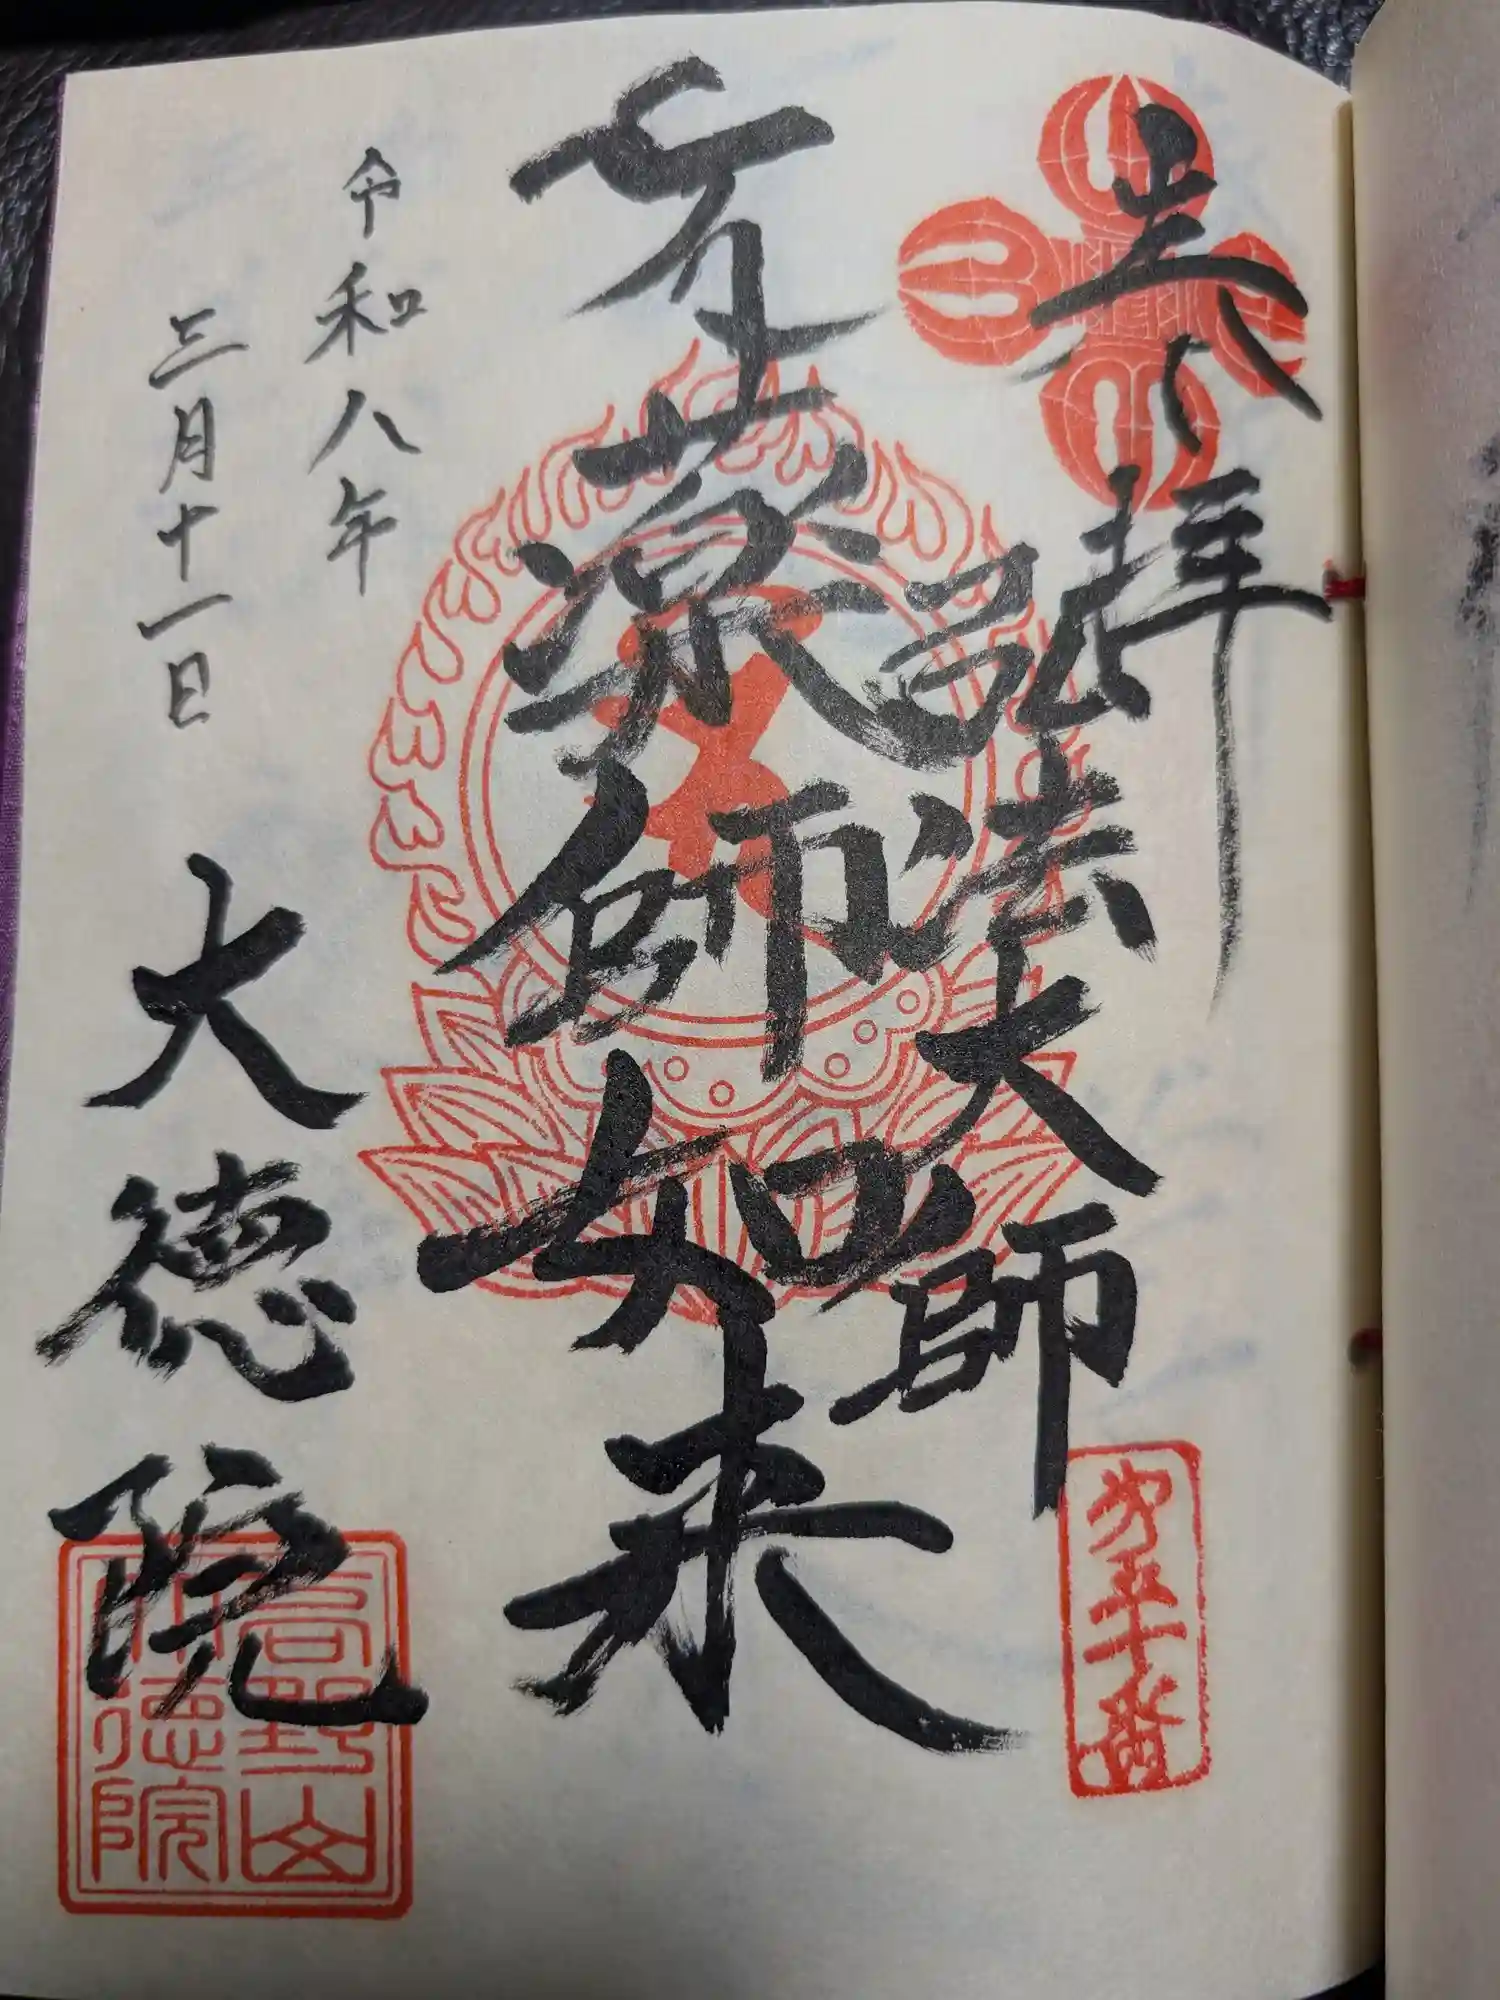 奉拝
弘法大師
薬師如来
令和八年
三月十一日
大徳院
第五十番
高野山
大徳院